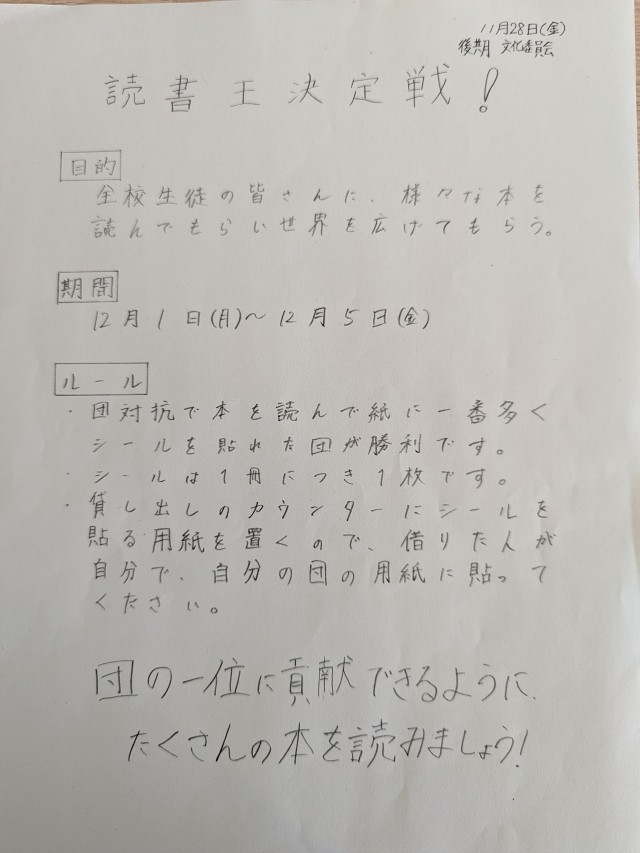 11月28日(金)
後期 文化委員会
読書王決定戦!
目的
全校生徒の皆さんに、様々な本を
読んでもらい世界を広げてもらう。
期間
12月1日(月)～12月5日(金)
ルール
・団対抗で本を読んで紙に一番多く
シールを貼れた団が勝利です。
・シールは1冊につき1枚です。
・貸し出しのカウンターにシールを
貼る用紙を置くので、借りた人が
自分で、自分の団の用紙に貼って
ください。
団の一位に貢献できるように、
たくさんの本を読みましょう!